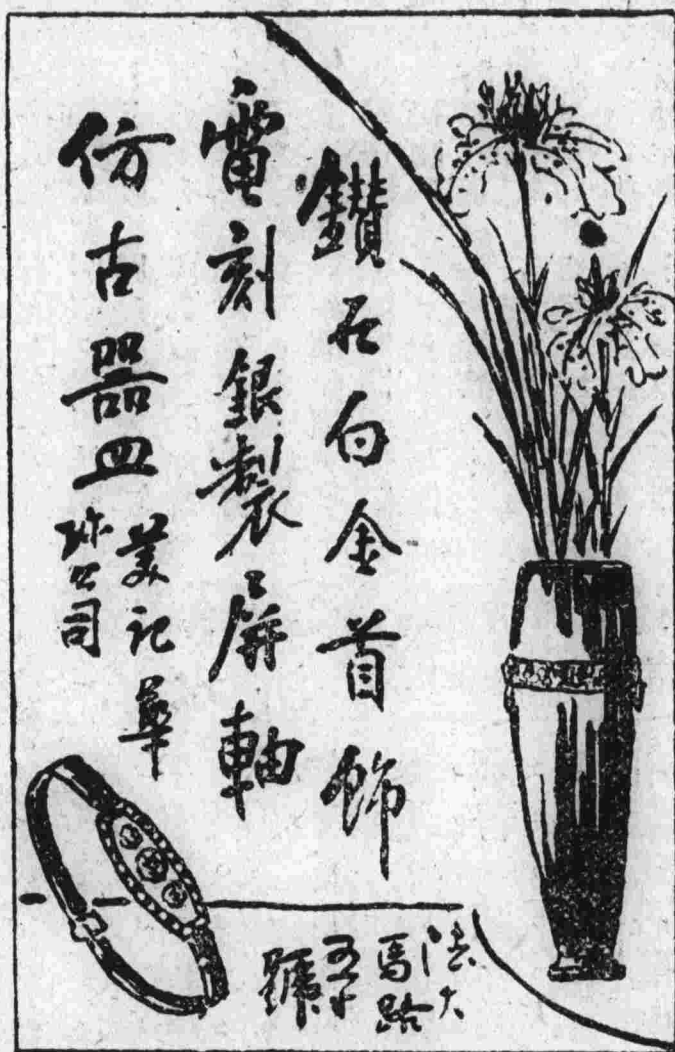 鑽石白金首飾
電刻銀製屏軸
仿古器皿
美記華
公司
大
馬路
號